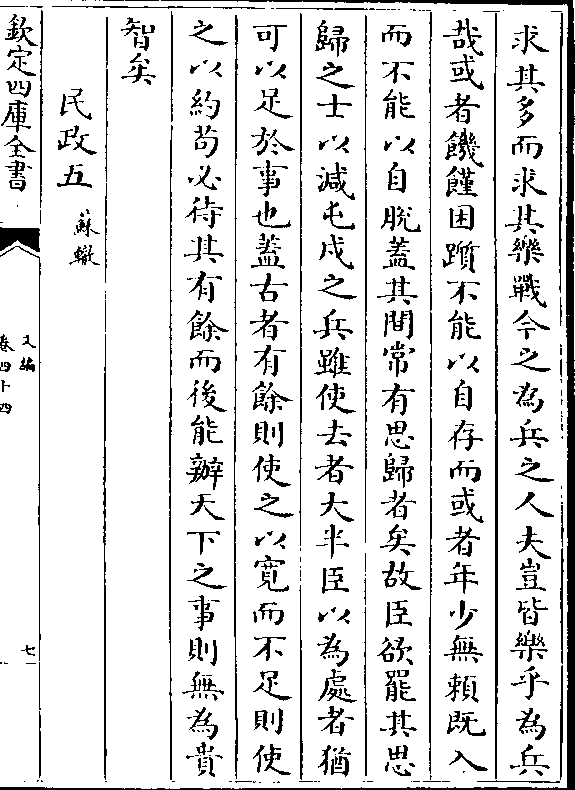 求其多而求其樂戰今之為兵之人夫豈皆樂乎為兵
哉或者饑饉困躓不能以自存而或者年少無賴既入
而不能以自脫蓋其間常有思歸者矣故臣欲罷其思
歸之士以減屯戍之兵雖使去者大半臣以為處者猶
可以足於事也蓋古者有餘則使之以寛而不足則使
之以約苟必待其有餘而後能辦天下之事則無為貴
智矣
民政五 蘇轍
欽定四庫全書
文編
卷四十四
七